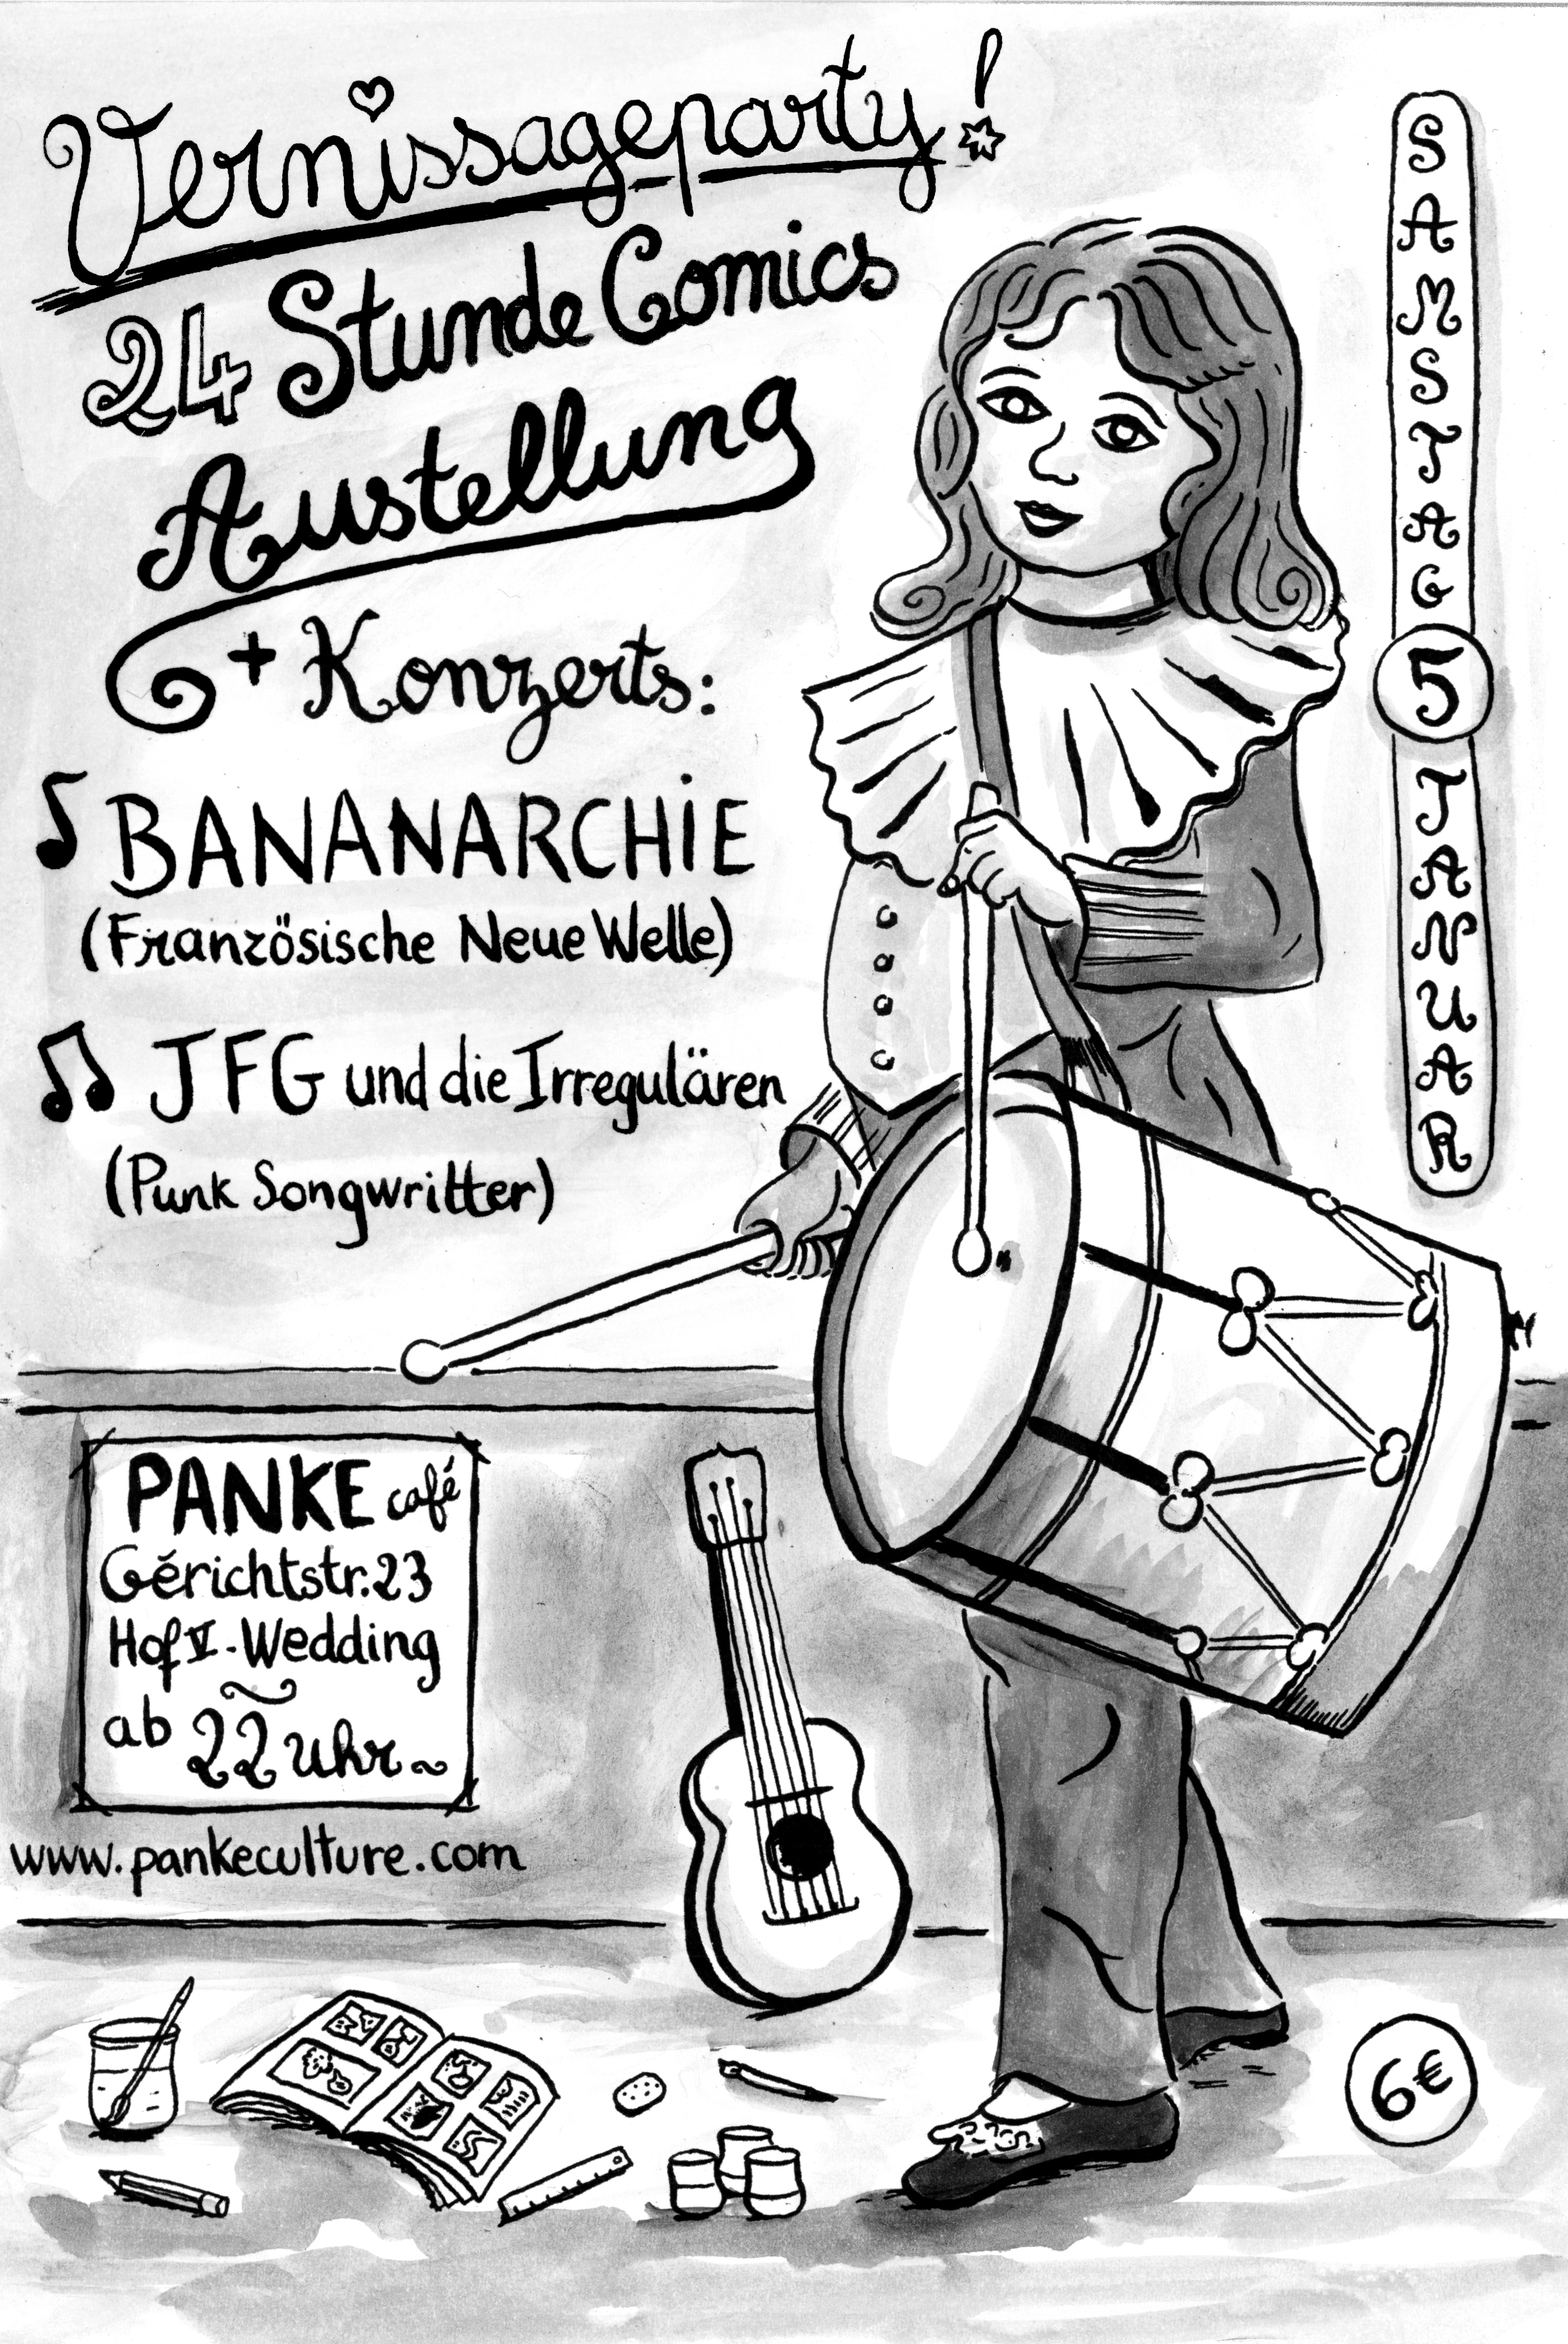 Vernissageparty!
24 Stunde Comics
Austellung
+ Konzerts:
BANANARCHiE
(Französische Neue Welle)
JFG und die Irregulären
(Punk Songwritter)
SAMSTAG
5
JANUAR
PANKE café
Gérichtstr.23
Hof V-Wedding
ab 22 Uhr~
www.pankeculture.com
6€